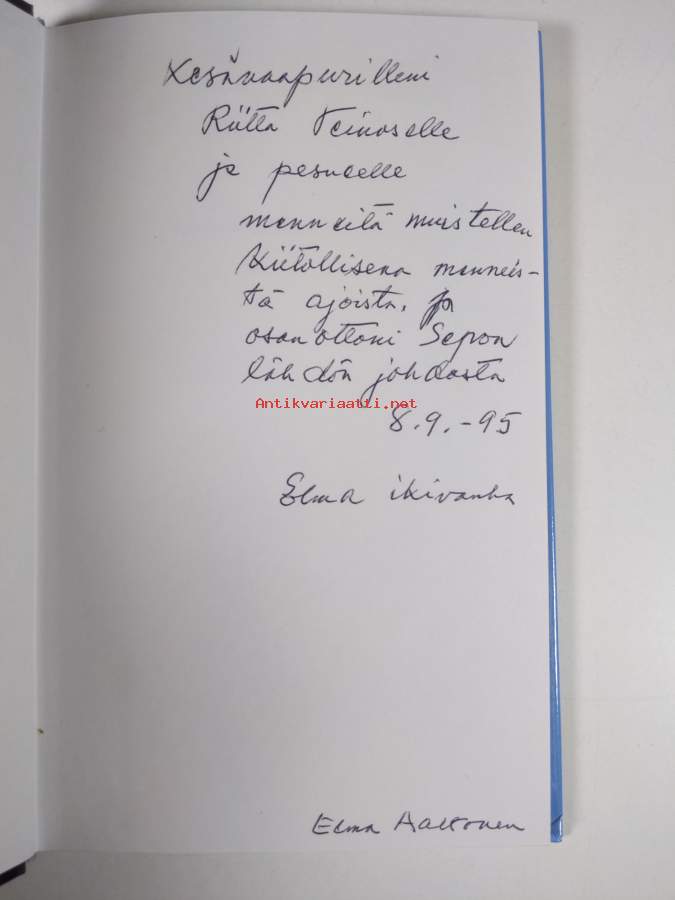 Kesänaapurilleni
Riitta Teinoselle
ja pesueelle
menneitä muistellen
Kiitollisena menneis-
tä ajoista, ja
osanottoni Sepon
lähdön johdosta
Antikvariaatti.net
8.9.-95
Elma ikivanha
Elma Aaltonen